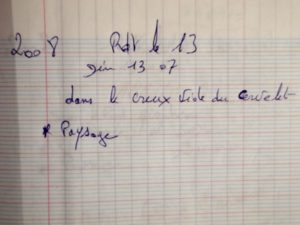 2008 Rdv le 13
13 07
dans le creux vide du cervelet
* Paysage